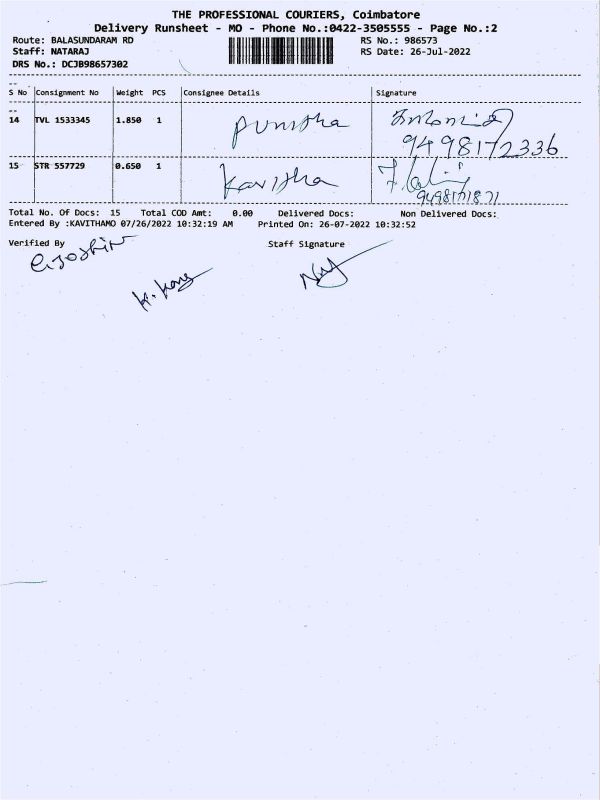 THE PROFESSIONAL COURIERS, Coimbatore
Delivery Runsheet - MO - Phone No.:0422-3505555 - Page No.:2
Route: BALASUNDARAM RD RS No.: 986573
Staff: NATARAJ RS Date: 26-Jul-2022
DRS No.: DCJB98657302
S No Consignment No Weight PCS Consignee Details Signature
14 TVL 1533345 1.850 1 Punitha
9498172336
15 STR 557729 0.650 1 Kavitha
9498171871
Total No. Of Docs: 15 Total COD Amt: 0.00 Delivered Docs: Non Delivered Docs:
Entered By :KAVITHAMO 07/26/2022 10:32:19 AM Printed On: 26-07-2022 10:32:52
Verified By Staff Signature